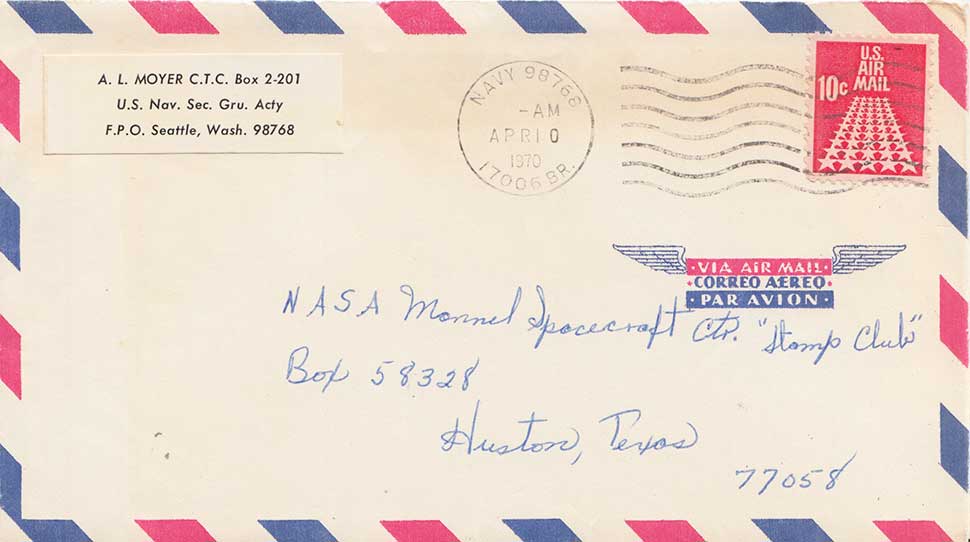 A. L. MOYER C.T.C. Box 2-201
U.S. Nav. Sec. Gru. Acty
F.P.O. Seattle, Wash. 98768
NAVY 98768
-AM
APR 10
1970
17006 BR.
U.S.
AIR
MAIL
10c
VIA AIR MAIL
CORREO AEREO
PAR AVION
NASA Mannel Spacecraft Ctr. "Stamp Club"
Box 58328
Huston, Texas
77058